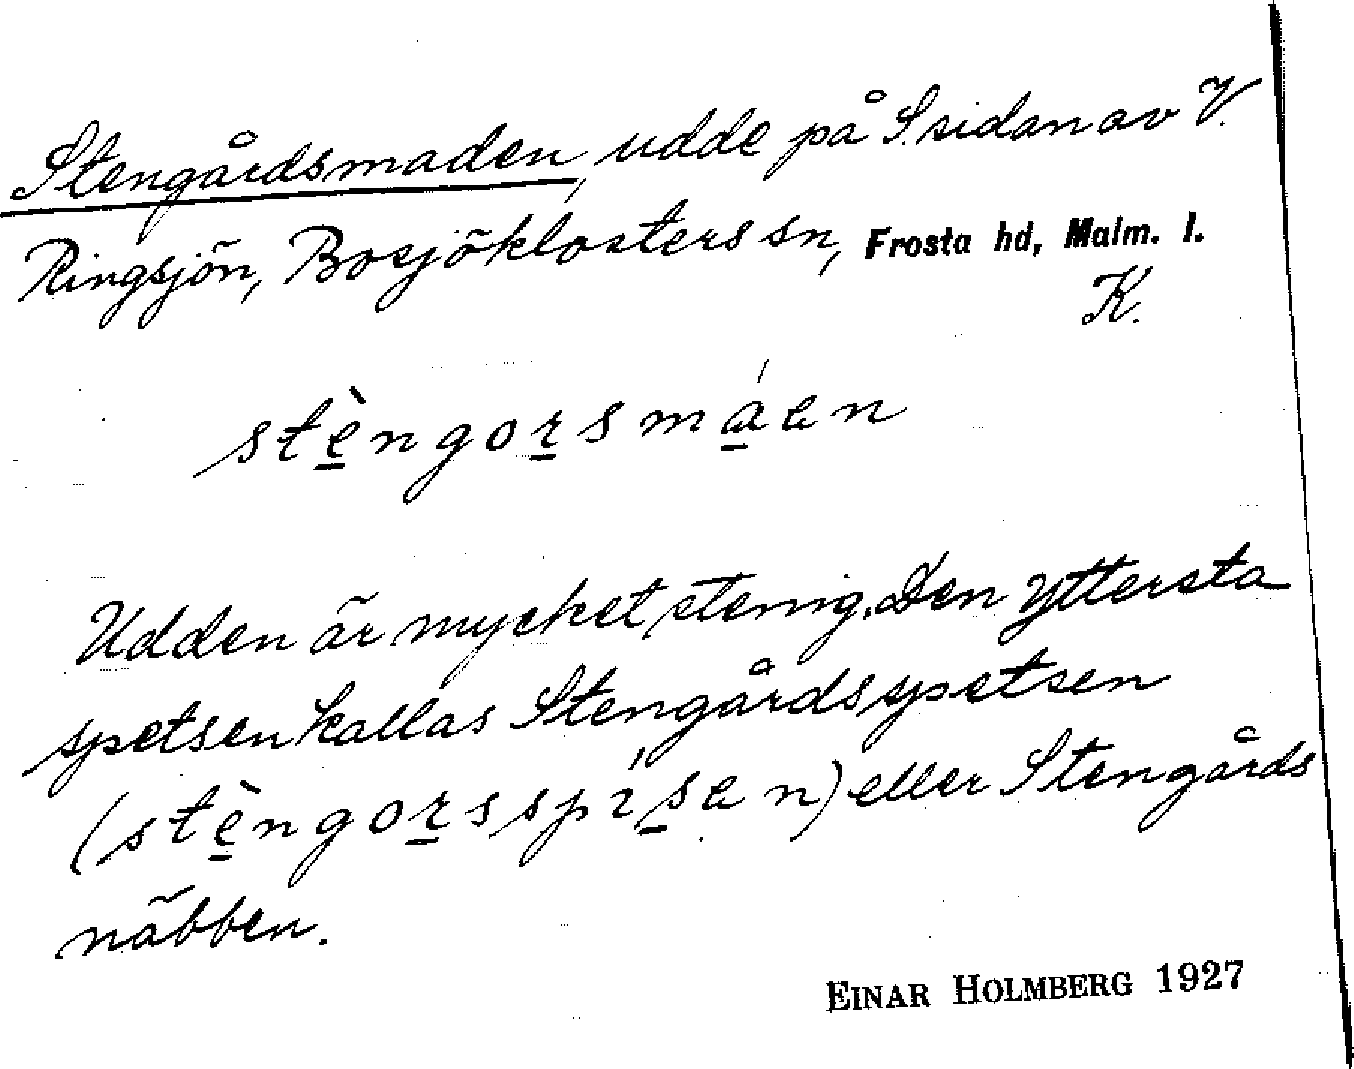 Stengårdsmaden, udde på S. sidan av V.
Ringsjön, Bosjöklosters sn, Frosta hd, Malm. l.
K.
stè̠ngor̠smá̠en
Udden är mycket stenig. Den yttersta
spetsen kallas Stengårdsspetsen
(stè̠ngor̠sspís̠en) eller Stengårds
näbben.
EINAR HOLMBERG 1927